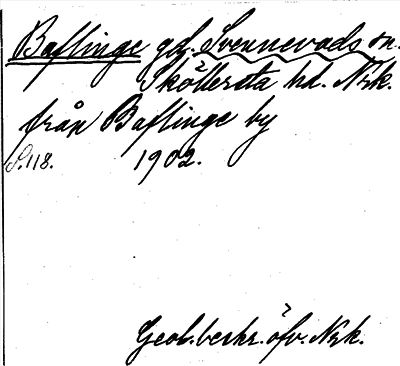 Baflinge gd. Svennevads sn.
Sköllersta hd. Nrk.
från Baflinge by
S. 118. 1902.
Geol. beskr. öfv. Nrk.